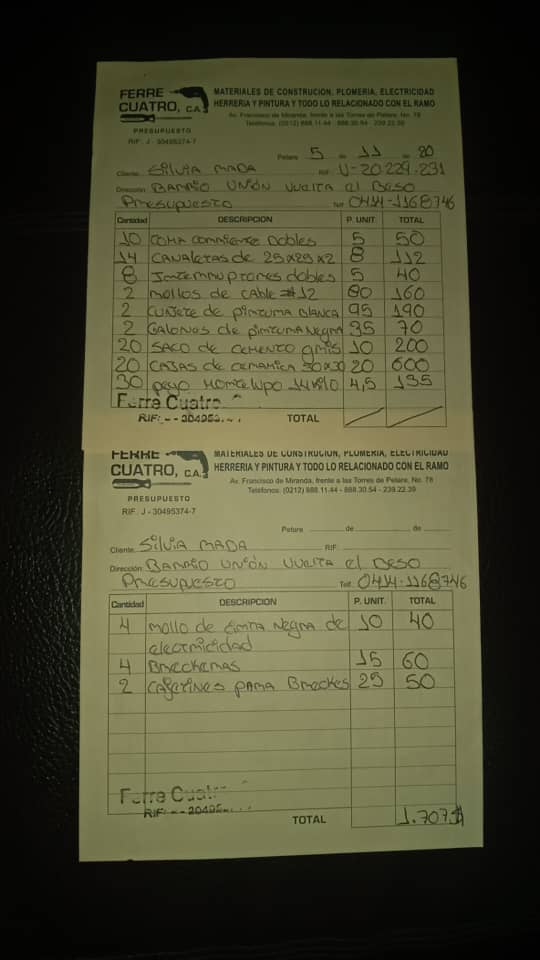 FERRE
CUATRO, C.A.
MATERIALES DE CONSTRUCION, PLOMERIA, ELECTRICIDAD
HERRERIA Y PINTURA Y TODO LO RELACIONADO CON EL RAMO
Av. Francisco de Miranda, frente a las Torres de Petare, No. 78
Teléfonos: (0212) 888.11.44 - 888.30.54 - 239.22.39
PRESUPUESTO
RIF. J - 30495374-7
Petare 5 de 11 de 20
Cliente: Silvia MADA RIF: V-20.229.231
Dirección: BARRIO UNIÓN VUELTA el Beso
Presupuesto Telf. 0414-1168746
Cantidad DESCRIPCION P. UNIT. TOTAL
10 TOMA CORRIENTE Dobles 5 50
14 CANALETAS DE 25x25x2 8 112
8 INTERRUPTORES dobles 5 40
2 Mollos de CABle #12 80 160
2 CUÑETE de PINTURA BLANCA 95 190
2 GALONES de PINTURA Negra 35 70
20 SACO de CEMENTO gris 10 200
20 CAJAS de CERAMICA 30x30 20 600
30 PEGO MONTELUPO 14kilo 4,5 135
Ferre Cuatro
RIF: - - 304953
TOTAL
FERRE
CUATRO, C.A.
MATERIALES DE CONSTRUCION, PLOMERIA, ELECTRICIDAD
HERRERIA Y PINTURA Y TODO LO RELACIONADO CON EL RAMO
Av. Francisco de Miranda, frente a las Torres de Petare, No. 78
Teléfonos: (0212) 888.11.44 - 888.30.54 - 239.22.39
PRESUPUESTO
RIF. J - 30495374-7
Petare de de
Cliente: Silvia MADA RIF:
Dirección: BARRIO UNIÓN VUELTA el Beso
Presupuesto Telf. 0414-1168746
Cantidad DESCRIPCION P. UNIT. TOTAL
4 Mollo de TINTA Negra de 10 40
electricidad
4 Breckeras 15 60
2 CAJETINES PARA Breckes 25 50
Ferre Cuat
RIF: - - 30495
TOTAL 1.707$